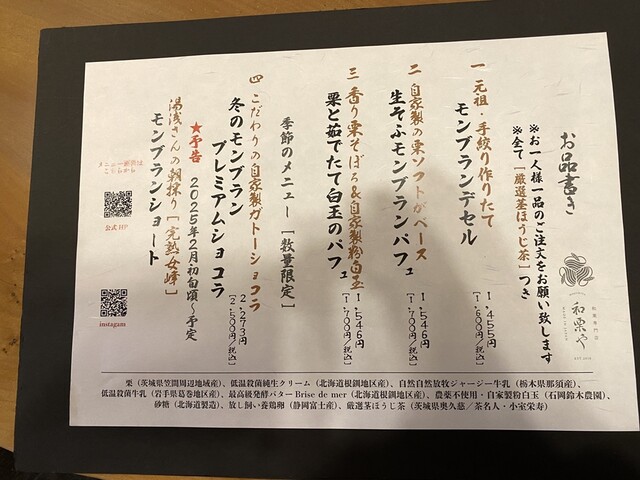 お品書き
※お一人様一品のご注文をお願い致します
※全て［厳選茎ほうじ茶］つき
和栗や
一 元祖・手絞り作りたて
モンブランデセル
1,455円
［1,600円/税込］
二 自家製の栗ソフトがベース
生そふモンブランパフェ
1,546円
［1,700円/税込］
三 香り栗そぼろ&自家製粉白玉
栗と茹でたて白玉のパフェ
1,546円
［1,700円/税込］
季節のメニュー［数量限定］
四 こだわりの自家製ガトーショコラ
冬のモンブラン
プレミアムショコラ
2,273円
［2,500円/税込］
★予告 2025年2月初旬頃～予定
湯浅さんの朝採り［完熟女峰］
モンブランショート
メニュー解説は
こちらから
公式HP
instagam
栗（茨城県笠間周辺地域産）、低温殺菌純生クリーム（北海道根釧地区産）、自然自然放牧ジャージー牛乳（栃木県那須産）、
低温殺菌牛乳（岩手県葛巻地区産）、最高級発酵バターBrise de mer（北海道根釧地区産）、農薬不使用・自家製粉白玉（石岡鈴木農園）、
砂糖（北海道製造）、放し飼い養鶏卵（静岡富士産）、厳選茎ほうじ茶（茨城県奥久慈／茶名人・小室栄寿）